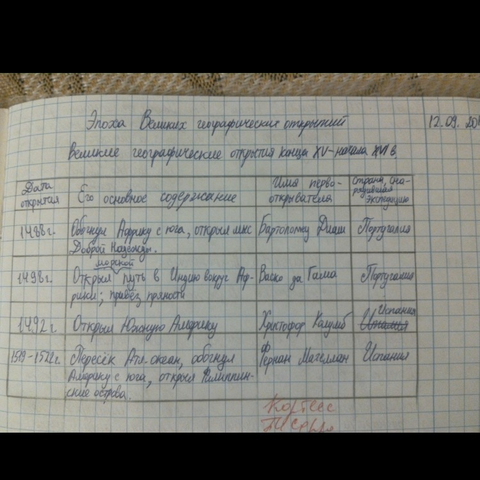 Эпоха Великих географические открытий
12.09.
Великие географические открытия конца XV-начала XVI в.
Дата открытия
Его основное содержание
Имя перво-открывателя
Страна, сна-рядившая экспедицию
1488г.
Обогнул Африку с юга, открыл мыс
Доброй Надежды.
Бартоломеу Диаш
Португалия
1498г.
морской
Открыл путь в Индию вокруг Аф-
рики; привёз пряности
Васко да Гама
Португалия
1492г.
Открыл Южную Америку
Христофор Колумб
Испания
1519-1522г.
Пересёк Атл. океан, обогнул
Америку с юга, открыл Филиппин-
ские острова.
Фернан Магеллан
Испания
Кортесс